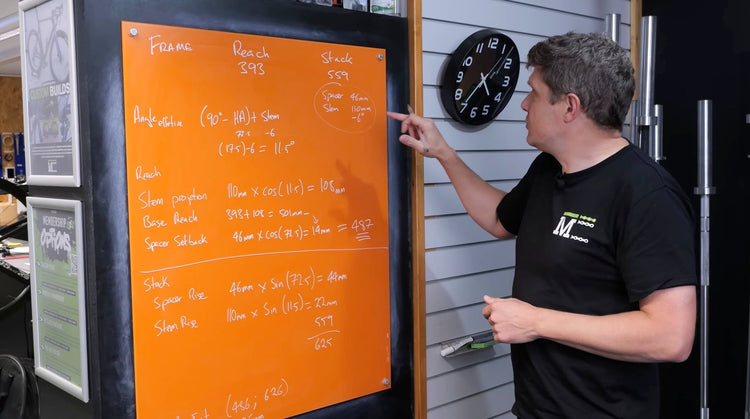 FRAME Reach Stack
393 559
Spacer 46mm
Stem 110mm
-6°
Angle effective (90° - HA) + Stem
72.5 -6
(17.5) - 6 = 11.5°
Reach
Stem projection 110mm x cos(11.5) = 108mm
Base Reach 393 + 108 = 501mm -
Spacer Setback 46mm x cos(72.5) = 14mm = 487
Stack
Spacer Rise 46mm x Sin(72.5) = 44mm
Stem Rise 110mm x Sin(11.5) = 22mm
559
625
(486; 626)
CUSTOM
BUILDS
MEMBERSHIP
OPTIONS
M
12
1
2
3
4
5
6
7
8
9
10
11